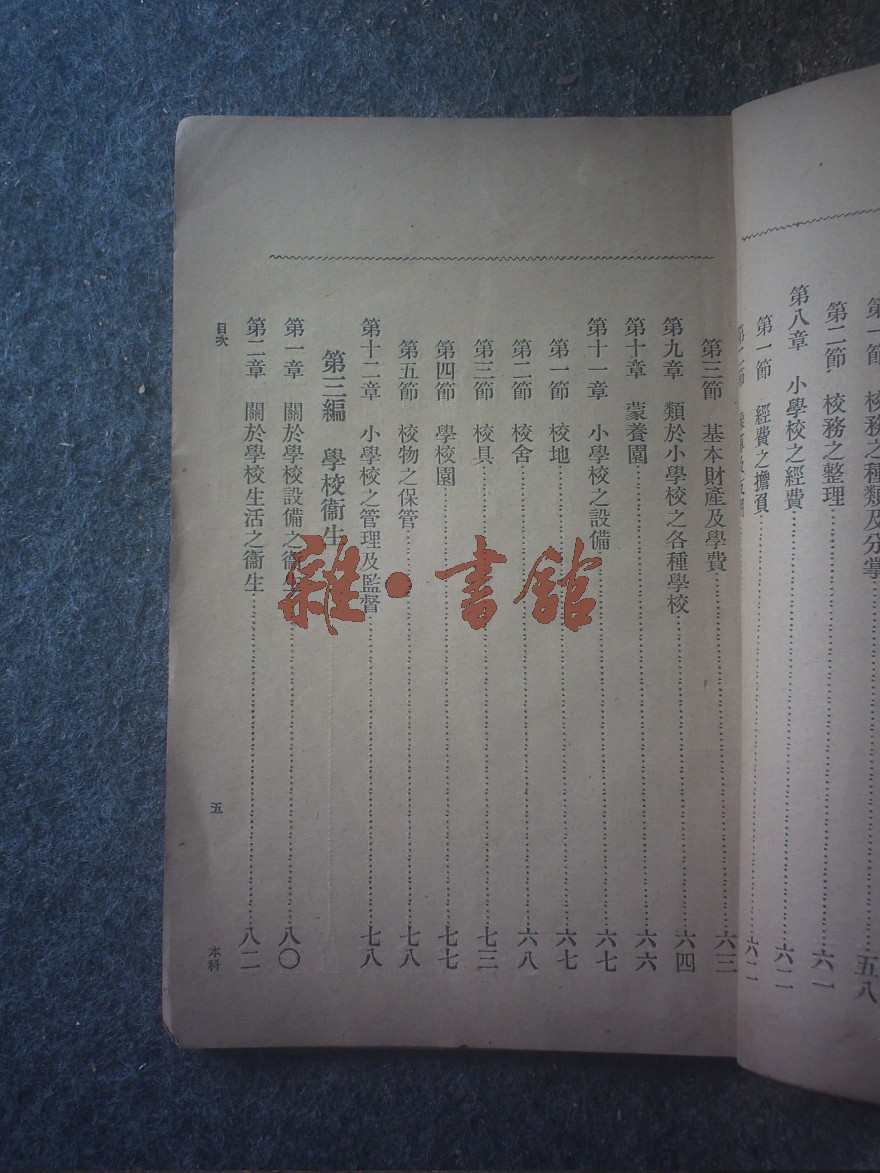 第一節 校務之種類及分掌 五八
第二節 校務之整理 六一
第八章 小學校之經費 六二
第一節 經費之擔負 六二
第二節
第三節 基本財產及學費 六三
第九章 類於小學校之各種學校 六四
第十章 蒙養園 六六
第十一章 小學校之設備 六七
第一節 校地 六七
第二節 校舍 六八
第三節 校具 七三
第四節 學校園 七七
第五節 校物之保管 七八
第十二章 小學校之管理及監督 七八
第三編 學校衞生
第一章 關於學校設備之衞生 八〇
第二章 關於學校生活之衞生 八二
目次
五
本科
雜·書館